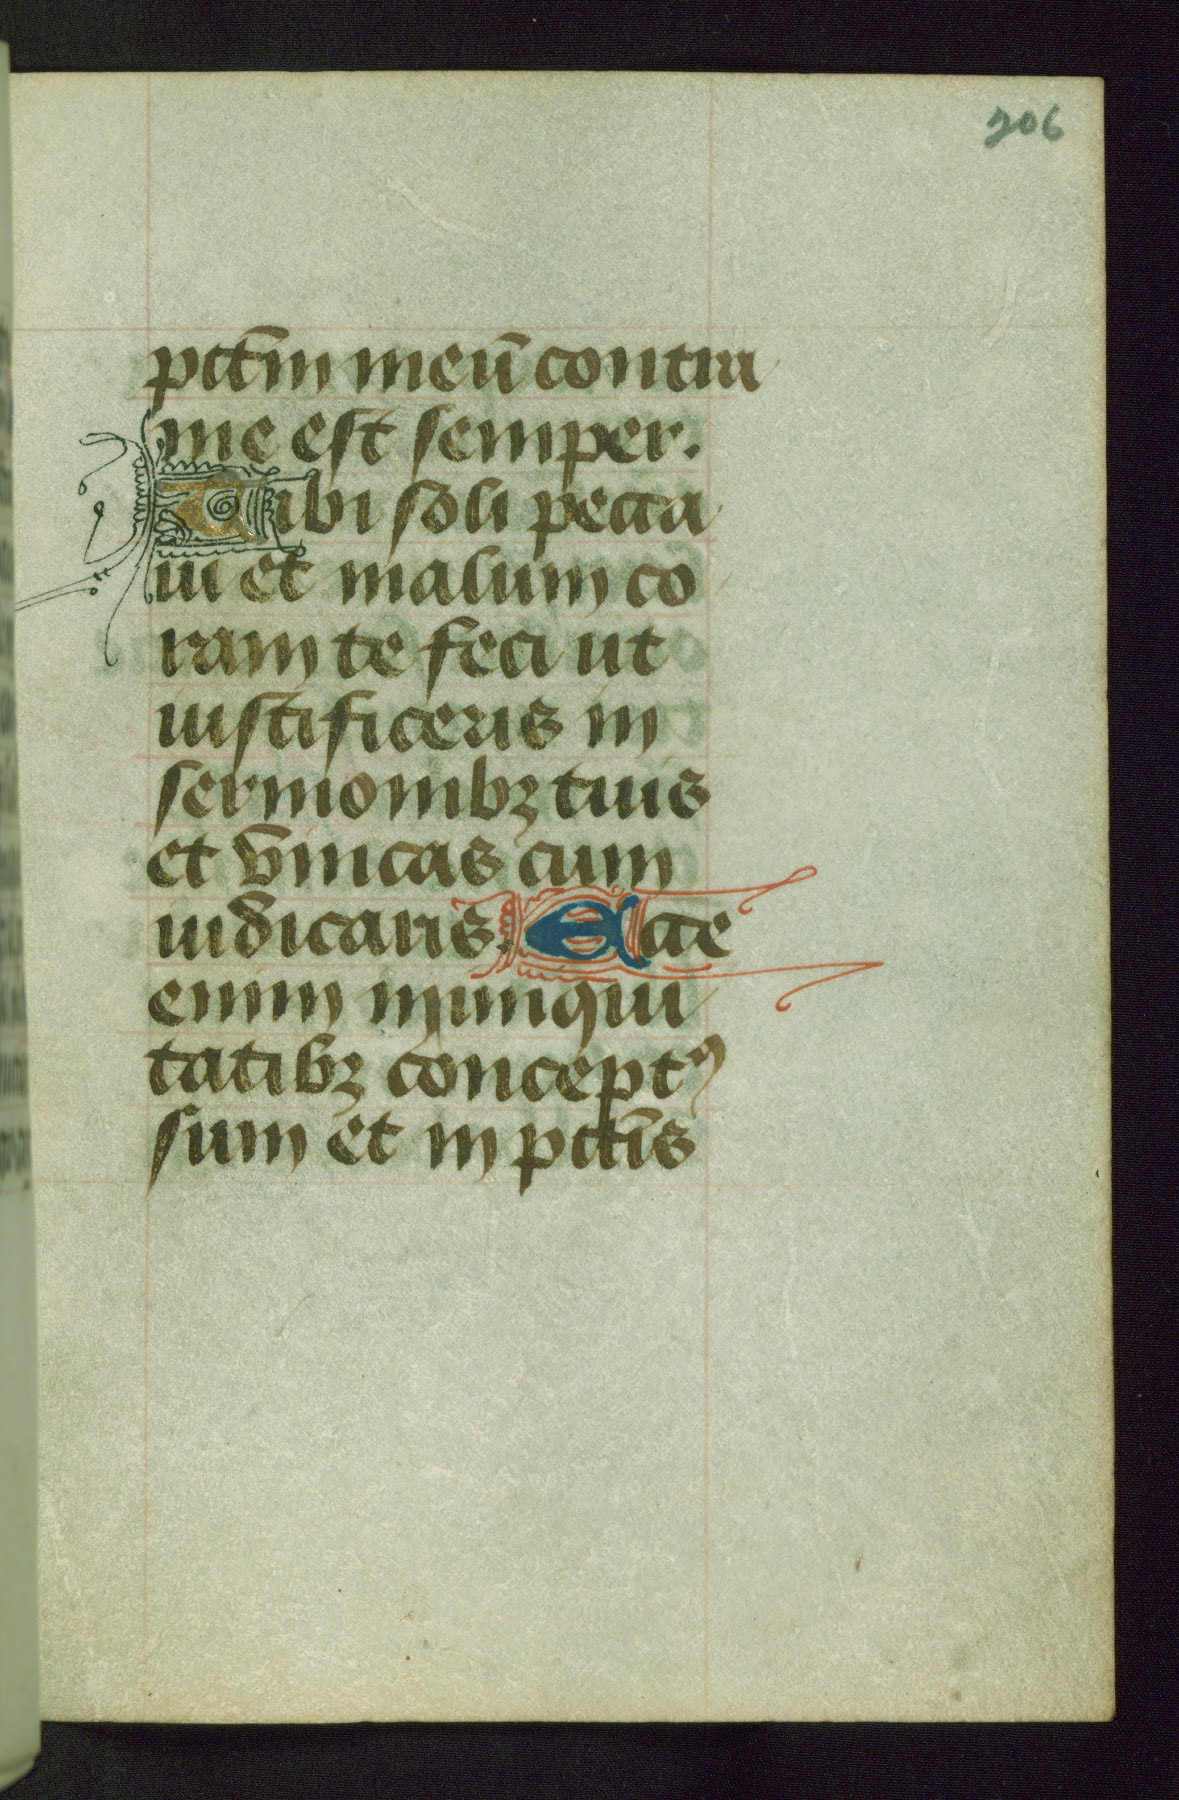 206
pctm̄ meū contra
me est semper.
Tibi soli pecca
ui et malum co
ram te feci ut
iustificeris in
sermonibꝫ tuis
et v̄incas cum
iudicaris. Ecce
enim in iniqui
tatibꝫ conceptꝰ
sum et in pctīs